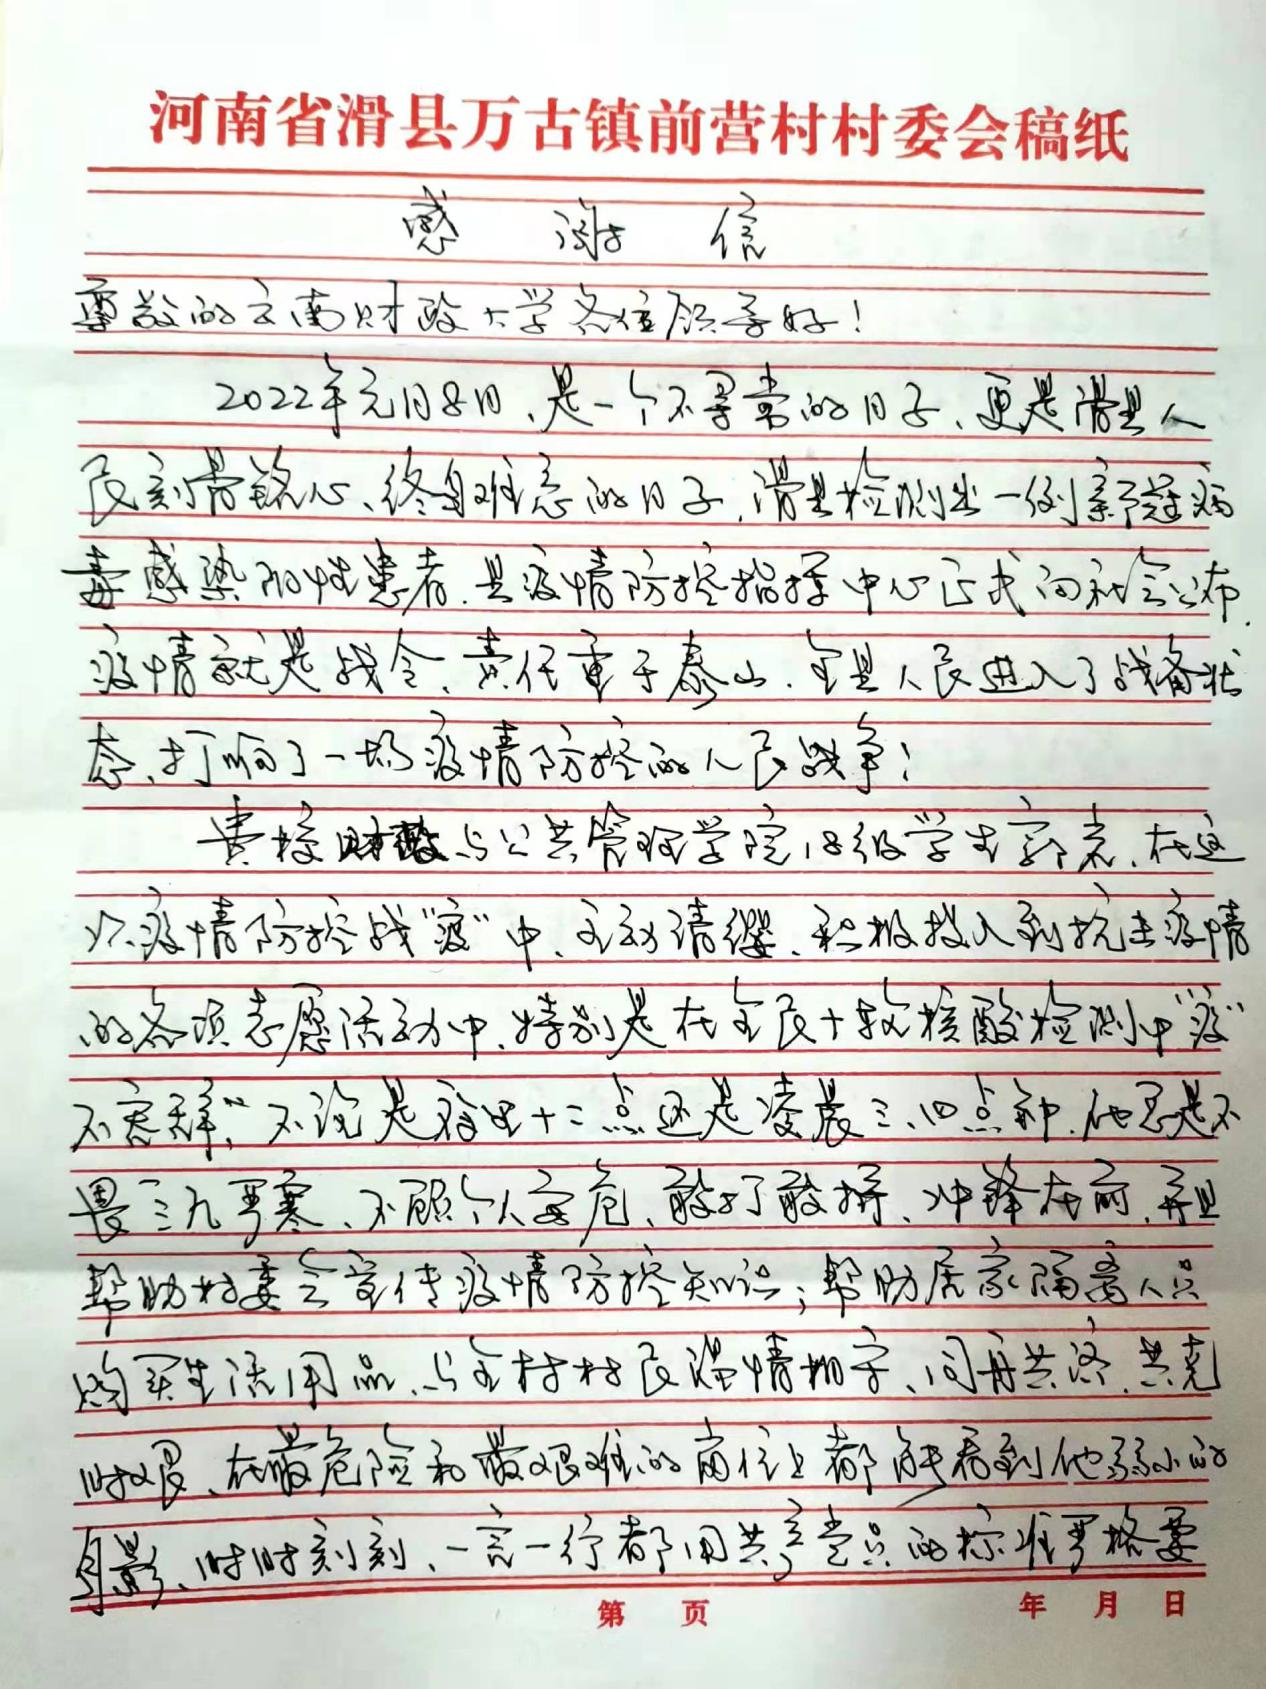 河南省滑县万古镇前营村村委会稿纸
感谢信
尊敬的云南财政大学各位领导好！
2022年元月8日、是一个不寻常的日子、更是滑县人
民刻骨铭心、终身难忘的日子，滑县检测出一例新冠病
毒感染阳性患者，县疫情防控指挥中心正式向社会公布，
疫情就是战令、责任重于泰山，全县人民进入了战备状
态、打响了一场疫情防控的人民战争！
贵校财政与公共管理学院18级学生郭 ，在这
次疫情防控战“疫”中、主动请缨、积极投入到抗击疫情
的各项志愿活动中、特别是在全民十轮核酸检测中“疫”
不容辞”，不论是夜里十二点还是凌晨三、四点钟，他总是不
畏三九严寒、不顾个人安危、敢打敢拼、冲锋在前，并且
帮助村委会宣传疫情防控知识；帮助居家隔离人员
购买生活用品、与全村村民温情相守、同舟共济，共克
时艰、在最危险和最艰难的岗位上都能看到他弱小的
身影、时时刻刻、一言一行都用共产党员的标准严格要
第 页 年 月 日